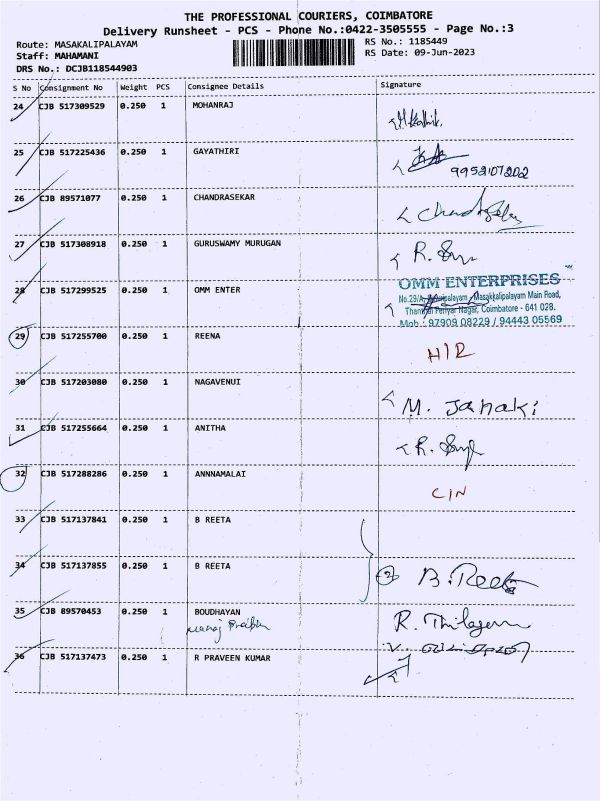 THE PROFESSIONAL COURIERS, COIMBATORE
Delivery Runsheet - PCS - Phone No.:0422-3505555 - Page No.:3
Route: MASAKALIPALAYAM RS No.: 1185449
Staff: MAHAMANI RS Date: 09-Jun-2023
DRS No.: DCJB118544903
S No Consignment No Weight PCS Consignee Details Signature
24 CJB 517309529 0.250 1 MOHANRAJ
25 CJB 517225436 0.250 1 GAYATHIRI
26 CJB 89571077 0.250 1 CHANDRASEKAR
27 CJB 517308918 0.250 1 GURUSWAMY MURUGAN
28 CJB 517299525 1 0.250 OMM ENTER
OMM ENTERPRISES
Masakkalipalayam Main Road,
Periyar Nagar, Coimbatore - 641 028.
Mob : 97909 08229 / 94443 05569
29 CJB 517255700 0.250 1 REENA
30 CJB 517203080 0.250 1 NAGAVENUI M. Janaki
31 CJB 517255664 0.250 1 ANITHA
32 CJB 517288286 0.250 1 ANNNAMALAI
33 CJB 517137841 0.250 1 B REETA
34 CJB 517137855 0.250 1 B REETA B. Reeta
35 CJB 89570453 0.250 1 BOUDHAYAN
36 CJB 517137473 0.250 1 R PRAVEEN KUMAR